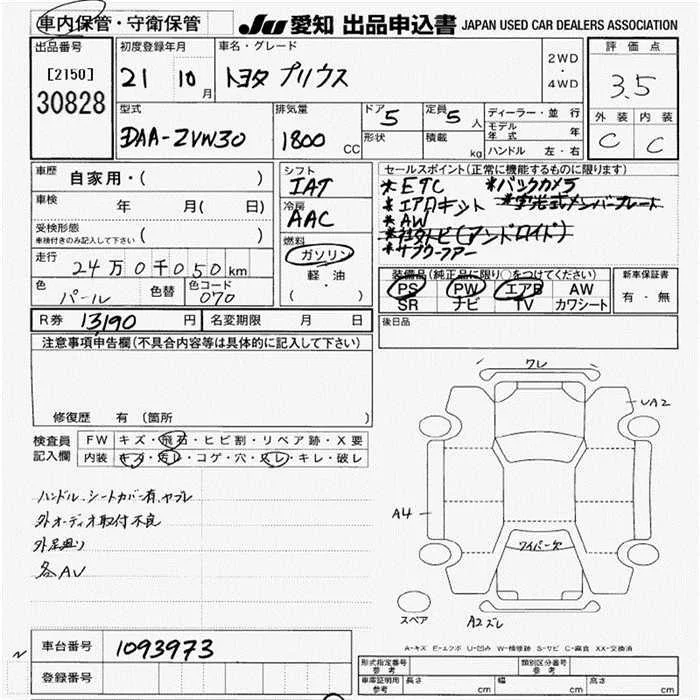 車内保管・守衛保管
JU 愛知 出品申込書 JAPAN USED CAR DEALERS ASSOCIATION
出品番号
[2150]
30828
初度登録年月
21 10月
車名・グレード
トヨタ プリウス
2WD
・
4WD
評価点
3.5
外装 内装
C C
型式
DAA-ZVW30
排気量
1800 CC
ドア 5
形状
定員 5 人
積載 kg
ディーラー・並行
モデル年式 年
ハンドル 左・右
車歴 自家用・( )
車検 年 月( 日)
受検形態
車検付きのみ記入して下さい ( )
走行 24万0千050km
色 パール 色替 色コード 070
シフト
IAT
冷房
AAC
燃料
ガソリン
軽油
・
( )
セールスポイント(正常に機能するものに限ります)
*ETC *バックカメラ
*エアロキット
*AW
装備品(純正品に限り○をつけてください)
PS PW エアB AW
SR ナビ TV カワシート
新車保証書
有・無
R券 13190 円 名変期限 月 日
後日品
注意事項申告欄(不具合内容等は具体的に記入して下さい)
修復歴 有 (箇所
検査員記入欄
FW キズ・飛石・ヒビ割・リペア跡・X要
内装 キズ・汚レ・コゲ・穴・スレ・キレ・破レ
ハンドル、シートカバー有、ヤブレ
外オーディオ取付不良
外足廻り
各AU
ワレ
UA2
A4
ワイパー欠
スペア
A2ズレ
A-キズ E-エクボ U-凹み W-補修跡 S-サビ C-腐食 XX-交換済
車台番号 1093973
登録番号
型式指定番号 参考
類別区分番号 参考
車庫証明用 参考 長さ cm 幅 cm 高さ cm